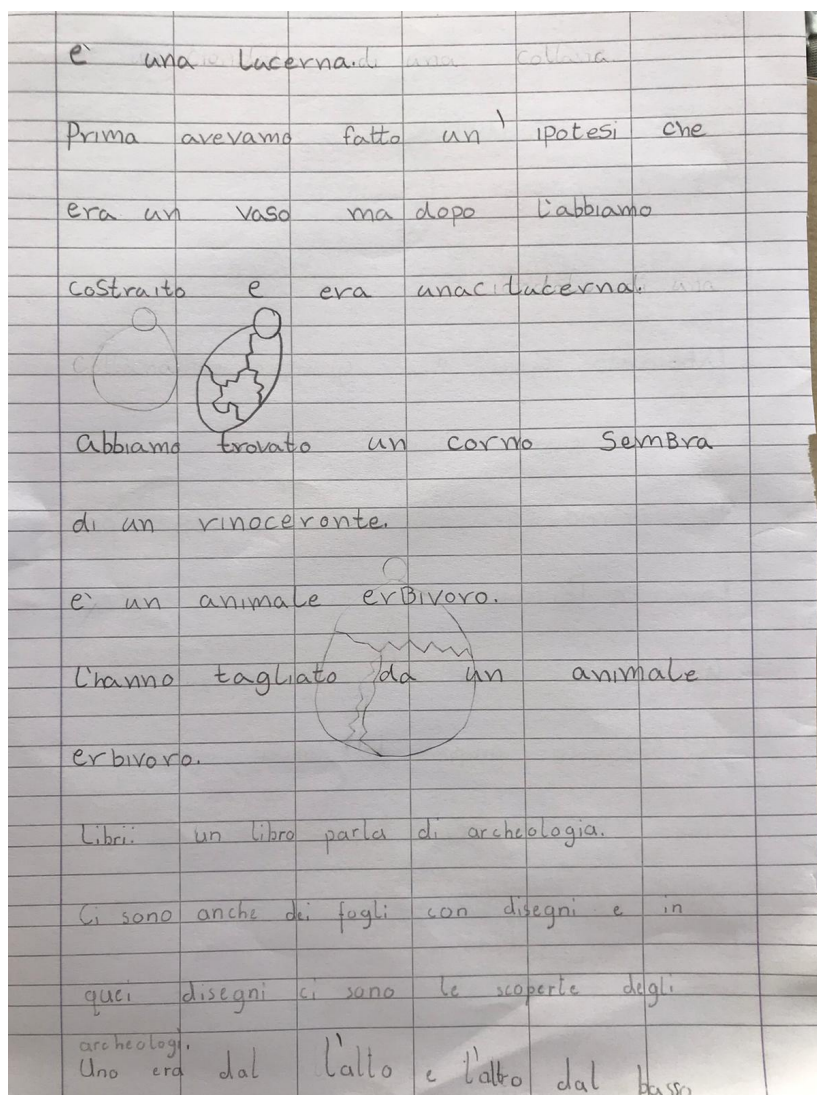 è una lucerna.
Prima avevamo fatto un' ipotesi che
era un vaso ma dopo l'abbiamo
costraito e era una lucerna.
abbiamo trovato un corno Sembra
di un rinoceronte.
è un animale erBivoro.
l'hanno tagliato da un animale
erbivoro.
Libri: un libro parla di archeologia.
Ci sono anche dei fogli con disegni e in
quei disegni ci sono le scoperte degli
archeologi.
Uno era dal l'alto e l'altro dal basso